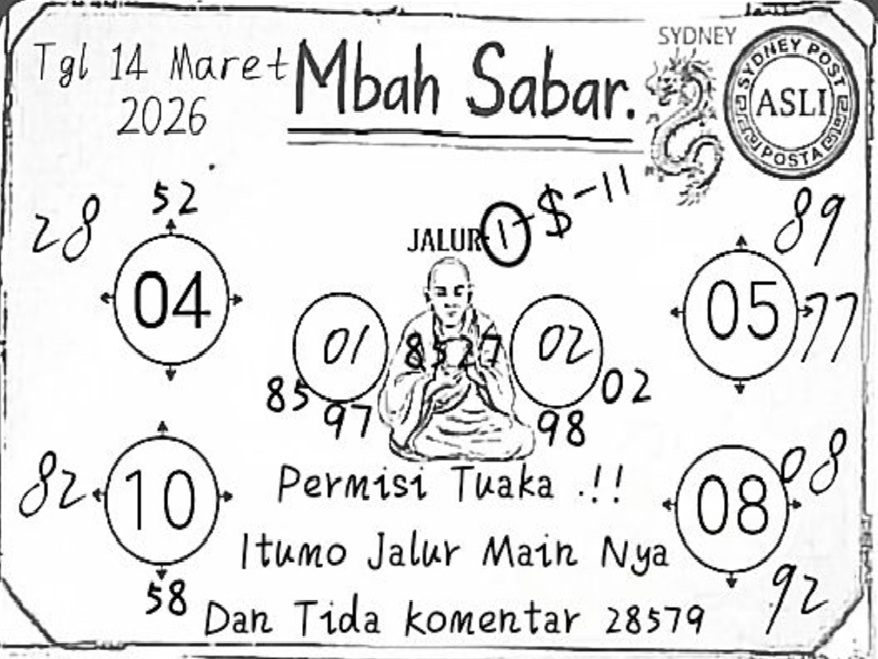 Tgl 14 Maret
2026
Mbah Sabar.
SYDNEY
SYDNEY POST
ASLI
POSTA
28
52
04
JALUR 1-$-11
89
05
77
01
8527
02
85
97
98
02
82
10
58
Permisi Tuaka .!!
08
08
Itumo Jalur Main Nya
92
Dan Tida komentar 28579